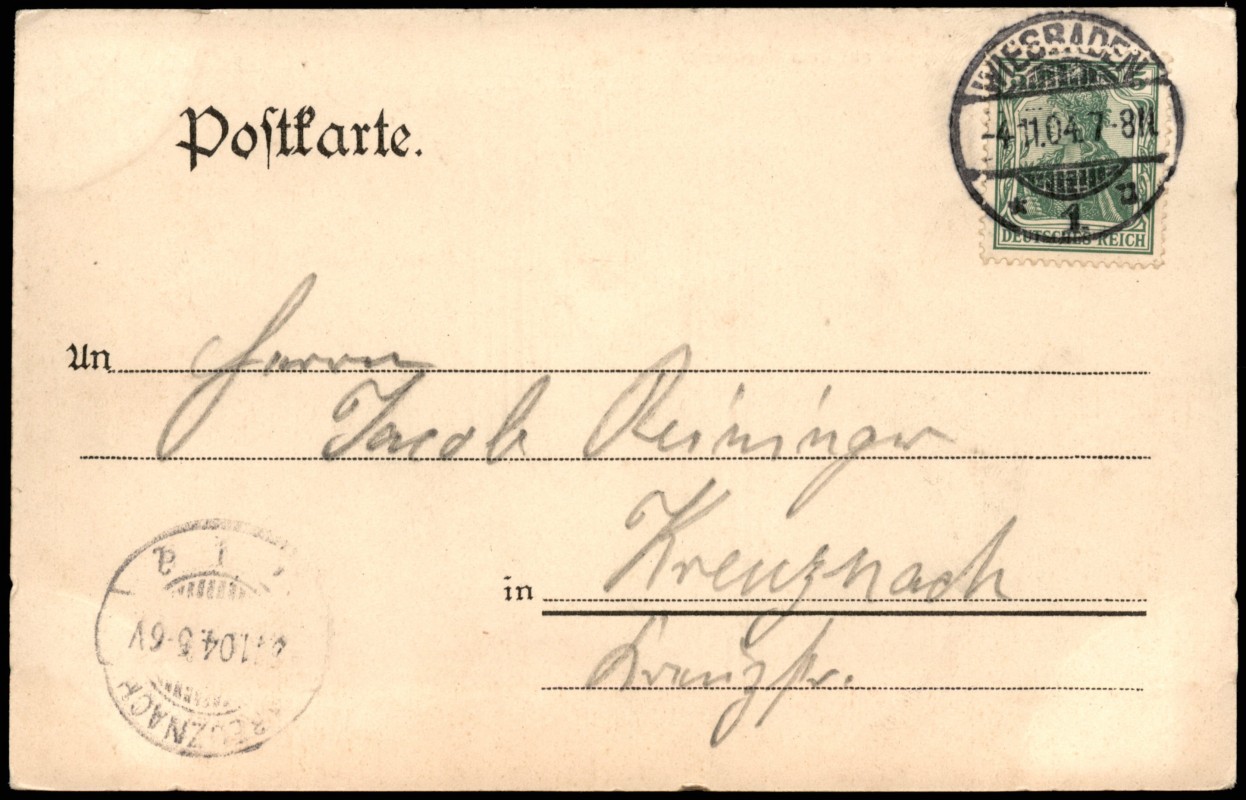 Postkarte.
WIESBADEN
-4.11.04. 7-8N.
* 1. a
DEUTSCHES REICH
An Herrn
Jacob Reininger
in Kreuznach
Kreuzstr.
KREUZNACH
11.04. 5-6V